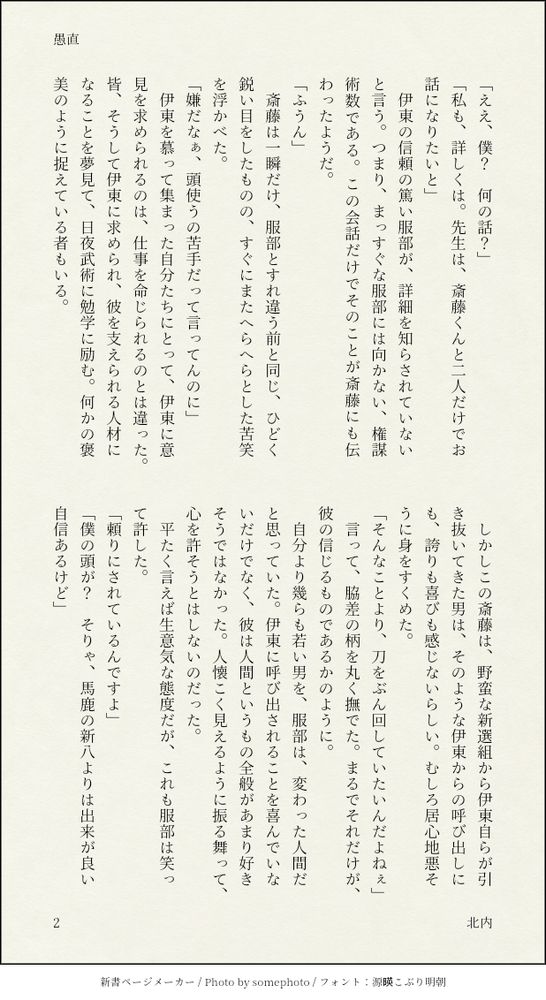 愚直
「ええ、僕？　何の話？」
「私も、詳しくは。先生は、斎藤くんと二人だけでお
話になりたいと」
　伊東の信頼の篤い服部が、詳細を知らされていない
と言う。つまり、まっすぐな服部には向かない、権謀
術数である。この会話だけでそのことが斎藤にも伝
わったようだ。
「ふうん」
　斎藤は一瞬だけ、服部とすれ違う前と同じ、ひどく
鋭い目をしたものの、すぐにまたへらへらとした苦笑
を浮かべた。
「嫌だなぁ、頭使うの苦手だって言ってんのに」
　伊東を慕って集まった自分たちにとって、伊東に意
見を求められるのは、仕事を命じられるのとは違った。
皆、そうして伊東に求められ、彼を支えられる人材に
なることを夢見て、日夜武術に勉学に励む。何かの褒
美のように捉えている者もいる。
　しかしこの斎藤は、野蛮な新選組から伊東自らが引
き抜いてきた男は、そのような伊東からの呼び出しに
も、誇りも喜びも感じないらしい。むしろ居心地悪そ
うに身をすくめた。
「そんなことより、刀をぶん回していたいんだよねぇ」
　言って、脇差の柄を丸く撫でた。まるでそれだけが、
彼の信じるものであるかのように。
　自分より幾らも若い男を、服部は、変わった人間だ
と思っていた。伊東に呼び出されることを喜んでいな
いだけでなく、彼は人間というもの全般があまり好き
そうではなかった。人懐こく見えるように振る舞って、
心を許そうとはしないのだった。
　平たく言えば生意気な態度だが、これも服部は笑っ
て許した。
「頼りにされているんですよ」
「僕の頭が？　そりゃ、馬鹿の新八よりは出来が良い
自信あるけど」
2
北内
新書ページメーカー / Photo by somephoto / フォント：源暎こぶり明朝